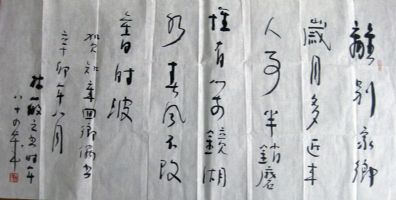 離別家鄉
歲月多近來
人事半銷磨
惟有门前鏡湖
水春風不改
舊時波
賀知章回鄉偶書
辛卯年八月